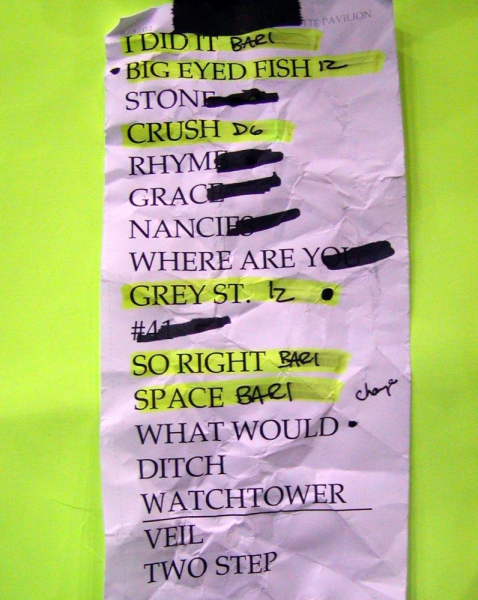 PAVILION
I DID IT BARI
• BIG EYED FISH 12
STONE
CRUSH D6
RHYME
GRACE
NANCIES
WHERE ARE YOU
GREY ST. 12 •
#41
SO RIGHT BARI
SPACE BARI change
WHAT WOULD •
DITCH
WATCHTOWER
VEIL
TWO STEP